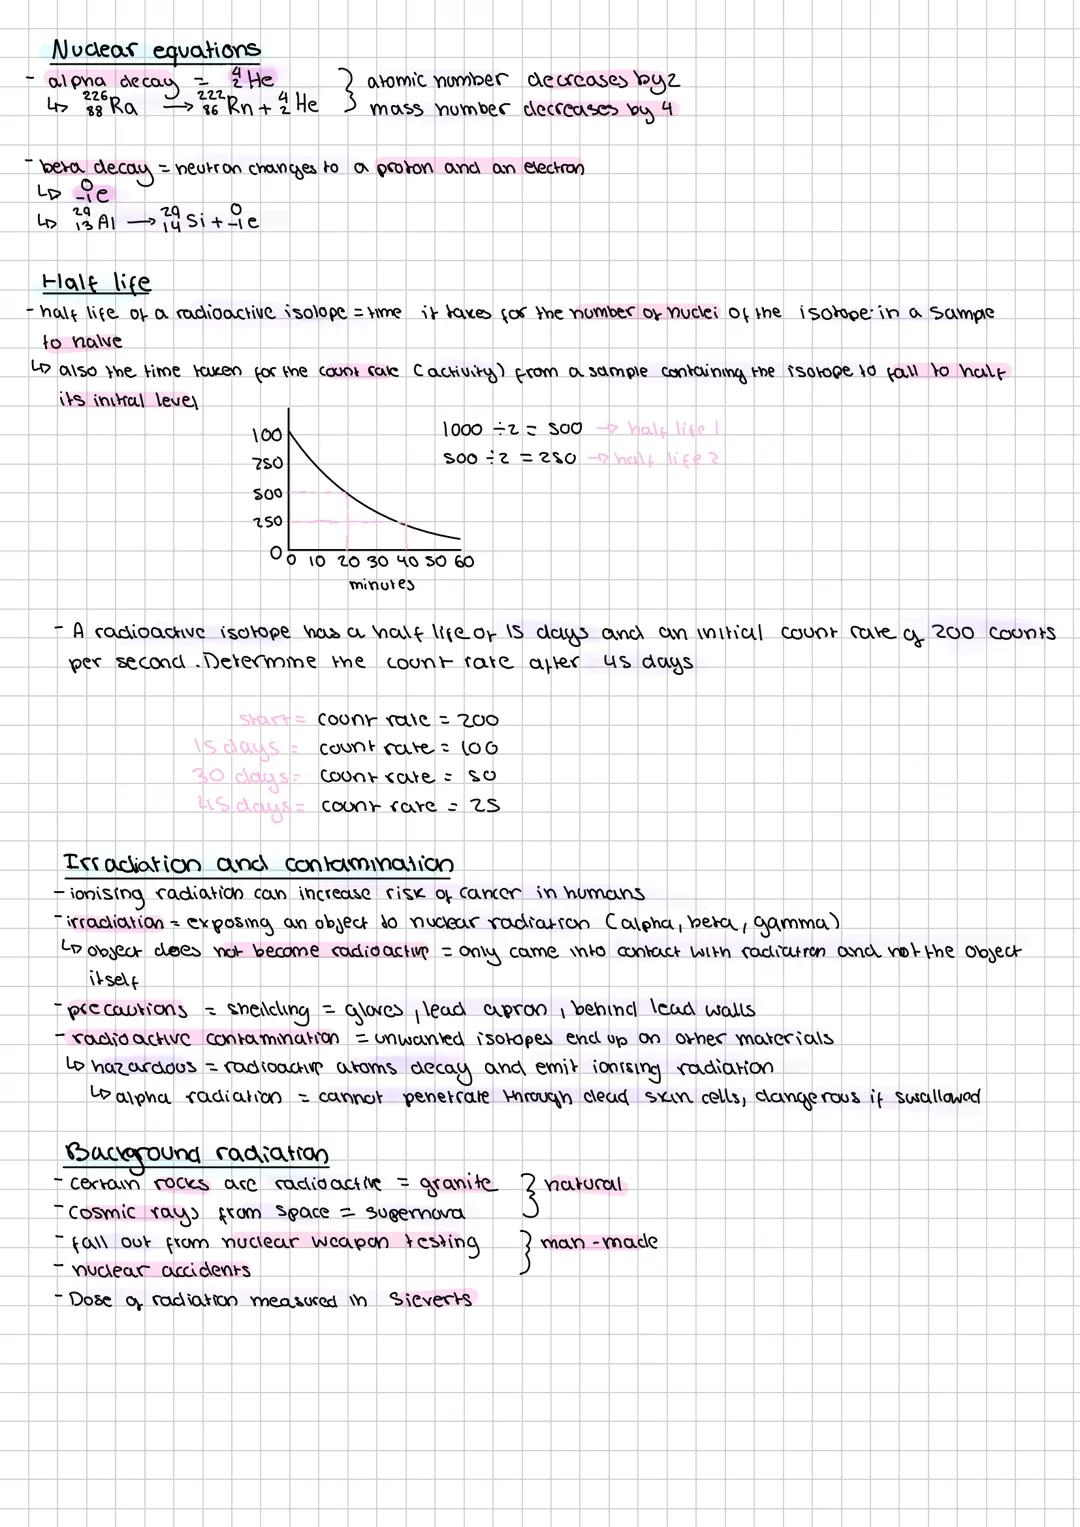 Nuclear equations
- alpha decay = ⁴₂He } atomic number decreases by 2
↳ ²²⁶₈₈Ra → ²²²₈₆Rn + ⁴₂He } mass number decreases by 4
- beta decay = neutron changes to a proton and an electron
↳ ⁰₋₁e
↳ ²⁹₁₃Al → ²⁹₁₄Si + ⁰₋₁e
Half life
- half life of a radioactive isotope = time it takes for the number of nuclei of the isotope in a sample
to halve
↳ also the time taken for the count rate (activity) from a sample containing the isotope to fall to half
its initial level
100
750
500
250
0
0 10 20 30 40 50 60
minutes
1000 ÷ 2 = 500 → half life 1
500 ÷ 2 = 250 → half life 2
- A radioactive isotope has a half life of 15 days and an initial count rate of 200 counts
per second. Determine the count rate after 45 days
start = count rate = 200
15 days = count rate = 100
30 days = count rate = 50
45 days = count rate = 25
Irradiation and contamination
- ionising radiation can increase risk of cancer in humans
- irradiation = exposing an object to nuclear radiation (alpha, beta, gamma)
↳ object does not become radioactive = only came into contact with radiation and not the object
itself
- precautions = sheilding = gloves, lead apron, behind lead walls
- radioactive contamination = unwanted isotopes end up on other materials
↳ hazardous = radioactive atoms decay and emit ionising radiation
↳ alpha radiation = cannot penetrate through dead skin cells, dangerous if swallowed
Background radiation
- certain rocks are radioactive = granite } natural
- cosmic rays from space = supernova
- fall out from nuclear weapon testing } man-made
- nuclear accidents
- Dose of radiation measured in Sieverts